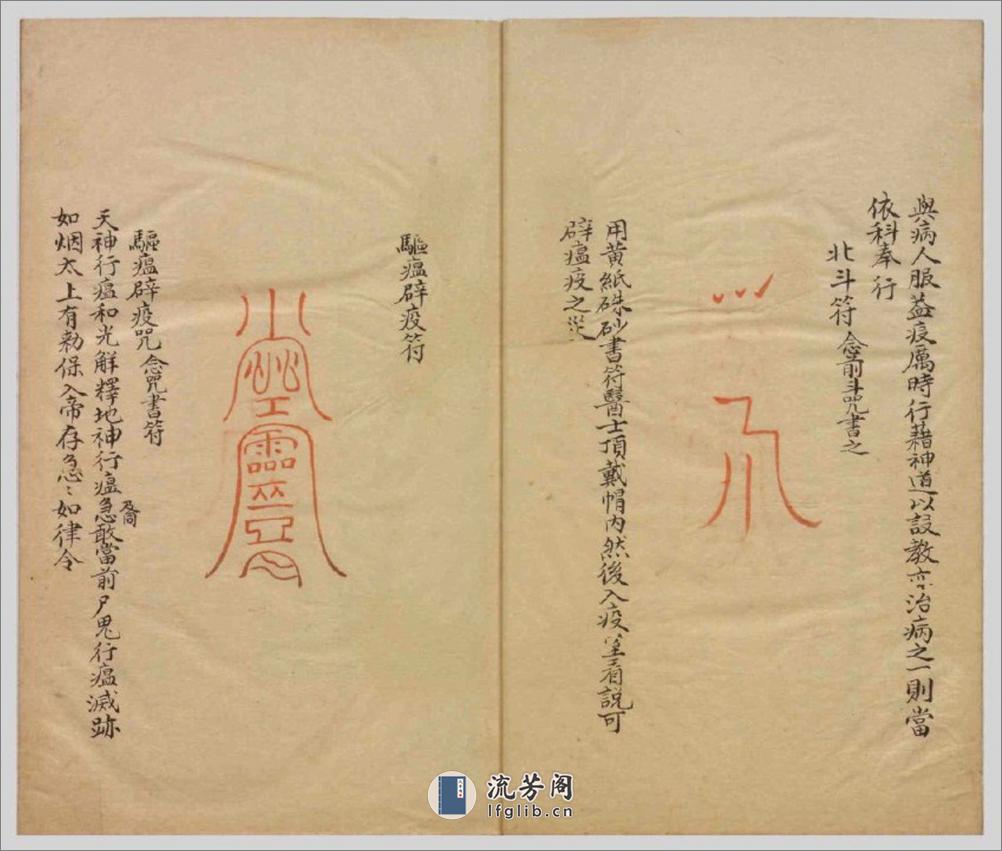 與病人服益疫厲時行藉神道以設教亦治病之一則當
依科奉行
北斗符 念前斗咒書之
用黃紙硃砂書符醫士頂戴帽內然後入疫室看說可
辟瘟疫之災
驅瘟辟疫符
驅瘟辟疫咒 念咒書符
天神行瘟和光解釋地神行瘟急敢當前尸鬼行瘟滅跡
如烟太上有勅保入帝存急〻如律令
流芳阁
lfglib.cn